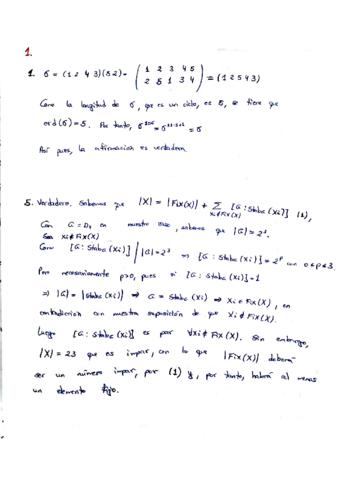 1.
1. σ = (1 2 4 3)(5 2) = ( 1 2 3 4 5 / 2 5 1 3 4 ) = (1 2 5 4 3)
Como la longitud de σ, que es un ciclo, es 5, se tiene que
ord(σ) = 5. Por tanto, σ
= σ
Así pues, la afirmación es verdadera.
5. Verdadero. Sabemos que |X| = |Fix(X)| + Σ [G : Stab_G(x_i)] (1),
x_i ∉ Fix(X)
Con G = D_4 en nuestro caso, sabemos que |G| = 2³.
Sea x_i ∉ Fix(X)
Como [G : Stab_G(x_i)] | |G| = 2³ ⇒ [G : Stab_G(x_i)] = 2^p con 0 ≤ p ≤ 3.
Pero necesariamente p>0, pues si [G : Stab_G(x_i)] = 1
⇒ |G| = |Stab_G(x_i)| ⇒ G = Stab_G(x_i) ⇒ x_i ∈ Fix(X), en
contradicción con nuestra suposición de que x_i ∉ Fix(X).
Luego [G : Stab_G(x_i)] es par ∀x_i ∉ Fix(X). Sin embargo,
|X| = 23 que es impar, con lo que |Fix(X)| deberá
ser un número impar, por (1) y, por tanto, habrá al menos
un elemento fijo.